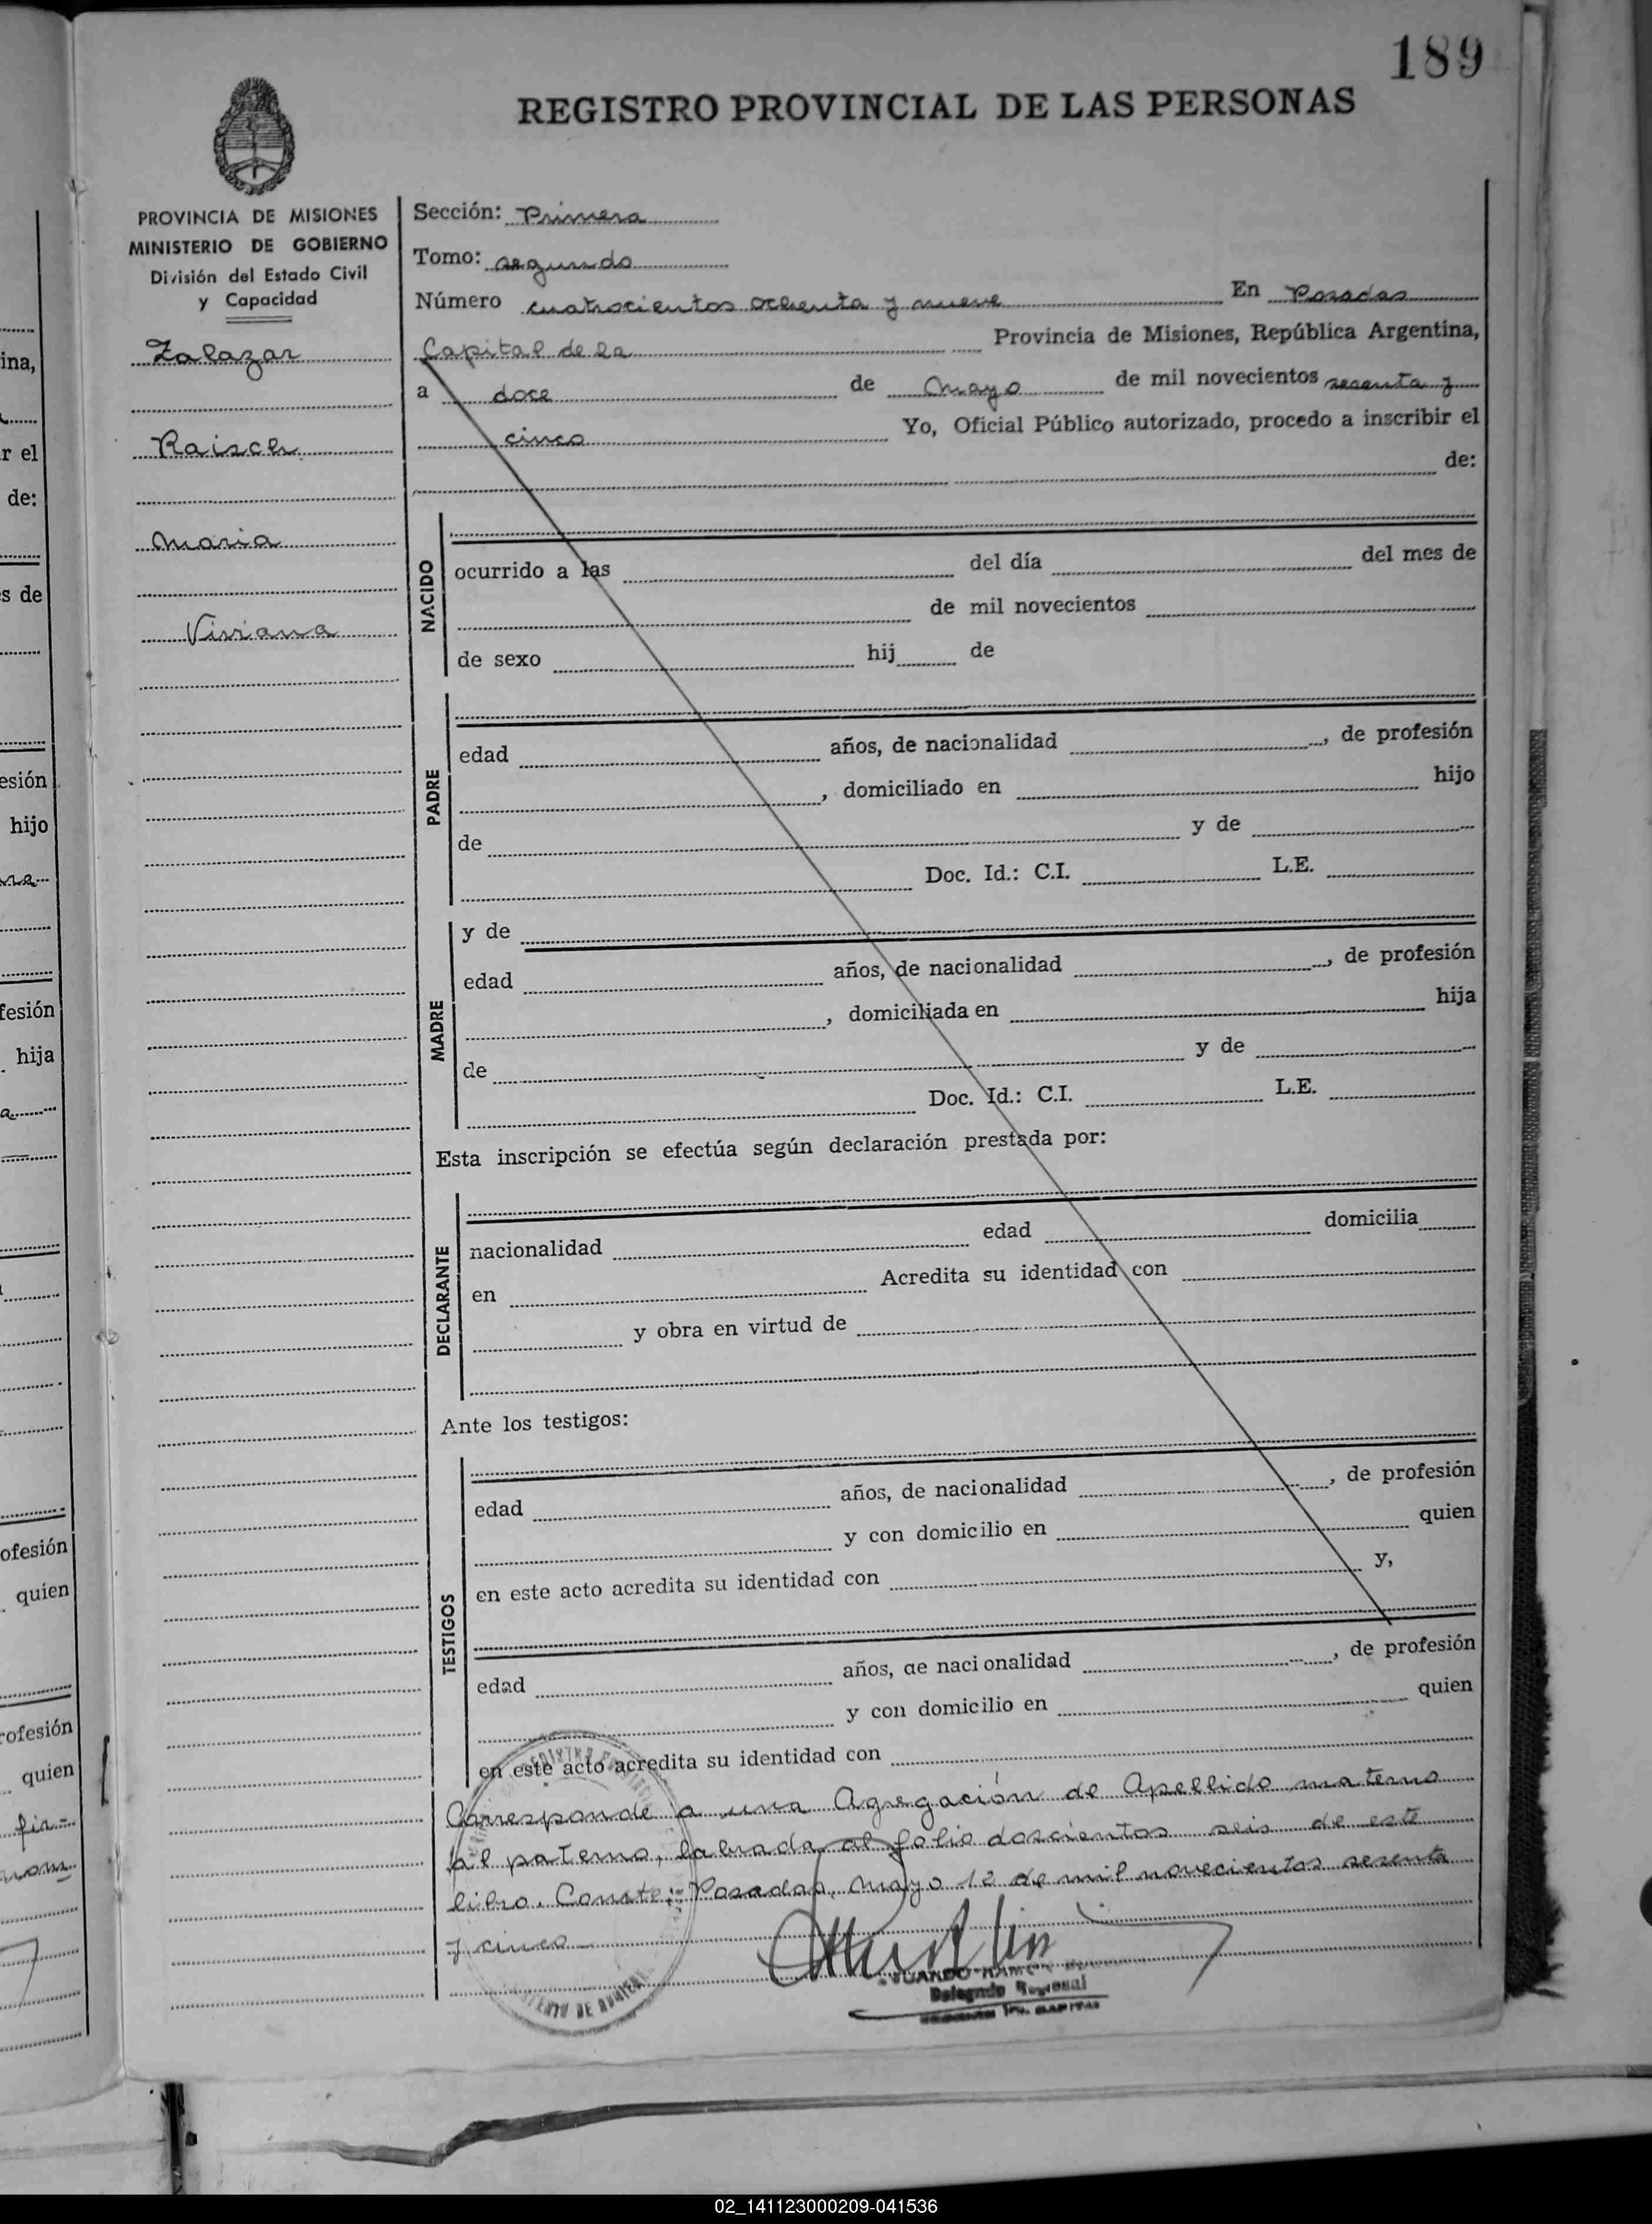 189
REGISTRO PROVINCIAL DE LAS PERSONAS
PROVINCIA DE MISIONES
MINISTERIO DE GOBIERNO
División del Estado Civil
y Capacidad
Zalazar
Raisch
Maria
Viviana
Sección: Primera
Tomo: segundo
Número cuatrocientos ochenta y nueve En Posadas
Capital de la Provincia de Misiones, República Argentina,
a doce de Mayo de mil novecientos sesenta y
cinco Yo, Oficial Público autorizado, procedo a inscribir el
de:
NACIDO
ocurrido a las del día del mes de
de mil novecientos
de sexo hij de
PADRE
edad años, de nacionalidad , de profesión
, domiciliado en hijo
de y de
Doc. Id.: C.I. L.E.
MADRE
y de
edad años, de nacionalidad , de profesión
, domiciliada en hija
de y de
Doc. Id.: C.I. L.E.
Esta inscripción se efectúa según declaración prestada por:
DECLARANTE
nacionalidad edad domicilia
en Acredita su identidad con
y obra en virtud de
Ante los testigos:
TESTIGOS
edad años, de nacionalidad , de profesión
y con domicilio en quien
en este acto acredita su identidad con y,
edad años, de nacionalidad , de profesión
y con domicilio en quien
en este acto acredita su identidad con
Corresponde a una Agregación de Apellido materno
al paterno, labrada al folio doscientos seis de este
libro. Conste: Posadas, Mayo 12 de mil novecientos sesenta
y cinco
Delegado Regional
ina,
r el
de:
s de
esión
hijo
fesión
hija
ofesión
quien
rofesión
quien
fir-
02_141123000209-041536